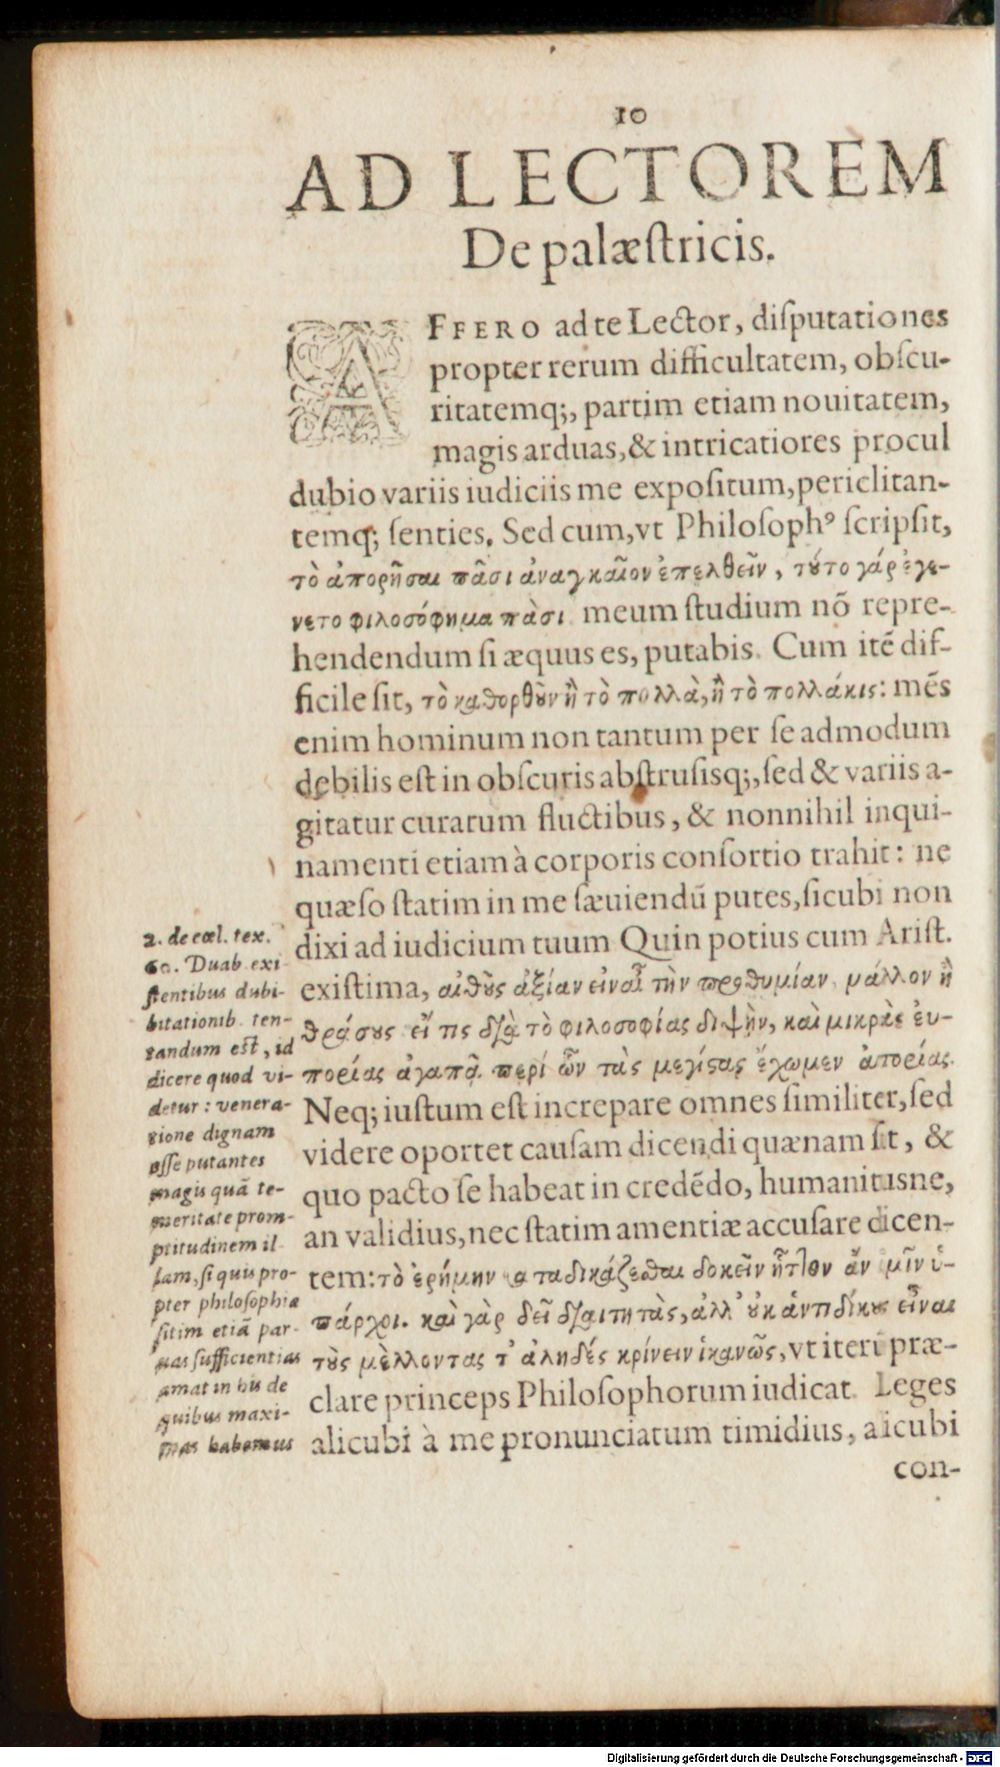 10
AD LECTOREM
De palæstricis.
AFFERO ad te Lector, disputationes
propter rerum difficultatem, obscu-
ritatemq;, partim etiam nouitatem,
magis arduas, & intricatiores procul
dubio variis iudiciis me expositum, periclitan-
temq; senties. Sed cum, vt Philosophꝰ scripsit,
τὸ ἀπορῆσαι πᾶσι ἀναγκαῖον ἐπελθεῖν, τοῦτο γάρ ἐγέ-
νετο φιλοσόφημα πᾶσι meum studium nō repre-
hendendum si æquus es, putabis. Cum itē dif-
ficile sit, τὸ κατορθοῦν ἢ τὸ πολλὰ, ἢ τὸ πολλάκις: mēs
enim hominum non tantum per se admodum
debilis est in obscuris abstrusisq;, sed & variis a-
gitatur curarum fluctibus, & nonnihil inqui-
namenti etiam à corporis consortio trahit: ne
quæso statim in me sæuiendū putes, sicubi non
dixi ad iudicium tuum Quin potius cum Arist.
existima, αἰδοῦς ἀξίαν εἶναι τὴν προθυμίαν μάλλον ἢ
θράσους εἴ τις διὰ τὸ φιλοσοφίας διψῆν, καὶ μικρὰς εὐ-
πορίας ἀγαπᾷ περί ὧν τὰς μεγίστας ἔχομεν ἀπορίας.
Neq; iustum est increpare omnes similiter, sed
videre oportet causam dicendi quænam sit, &
quo pacto se habeat in credēdo, humanitusne,
an validius, nec statim amentiæ accusare dicen-
tem: τὸ ἐρήμην καταδικάζεσθαι δοκεῖν ἧττον ἄν ἡμῖν ὑ-
πάρχοι. καὶ γὰρ δεῖ διαιτητὰς, ἀλλ' οὐκ ἀντιδίκους εἶναι
τοὺς μὲλλοντας τ' ἀληθές κρίνειν ἱκανῶς, vt iterū præ-
clare princeps Philosophorum iudicat. Leges
alicubi à me pronunciatum timidius, alicubi
con-
2. de cœl. tex.
60. Duab. exi-
stentibus dubi-
bitationib. ten-
tandum est, id
dicere quod vi-
detur: venera-
tione dignam
esse putantes
magis quā te-
meritate prom-
ptitudinem il-
lam, si quis pro-
pter philosophiæ
sitim etiā par-
uas sufficientias
amat in his de
quibus maxi-
mas habemus
Digitalisierung gefördert durch die Deutsche Forschungsgemeinschaft - DFG